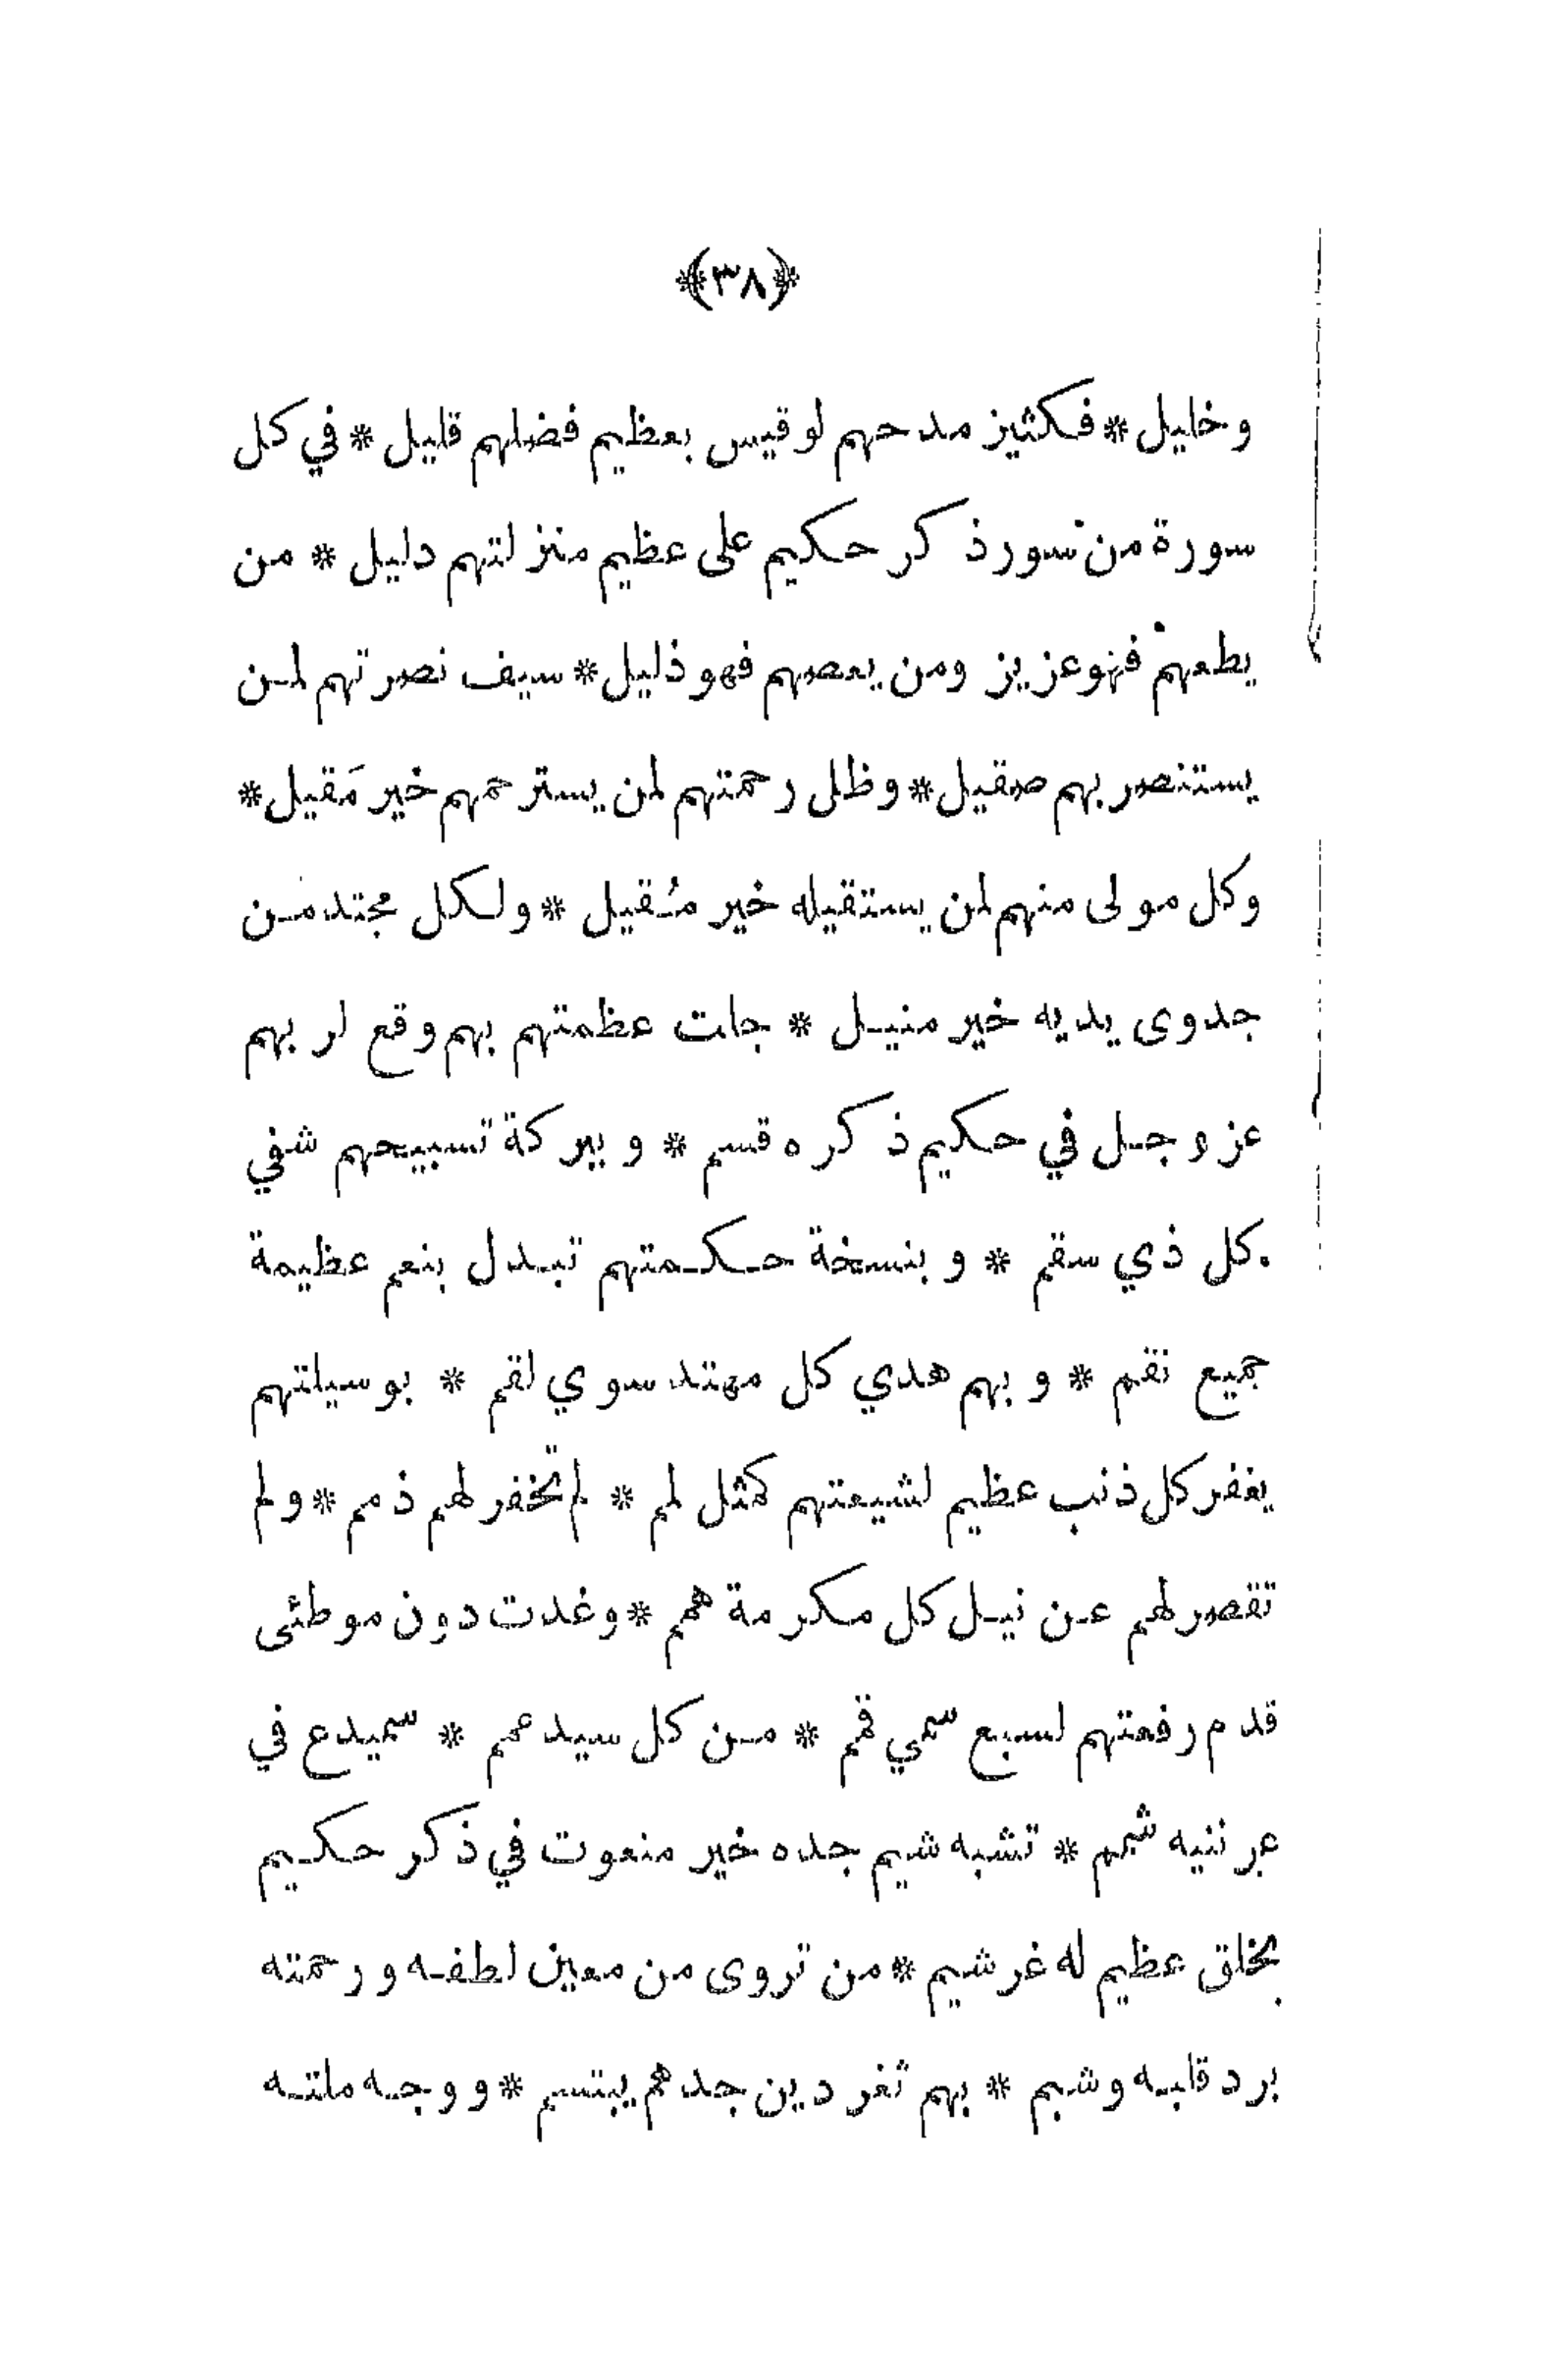 ﴿٣٨﴾
وخليل * فكثير مدحهم لو قيس بعظيم فضلهم قليل * في كل
سورة من سور ذكر حكيم على عظيم منزلتهم دليل * من
يطعهم فهو عزيز ومن يعصهم فهو ذليل * سيف نصرتهم لمن
يستنصر بهم صقيل * وظل رحمتهم لمن يسترحمهم خير مَقيل *
وكل مولى منهم لمن يستقيله خير مُقيل * ولكل مجتد من
جدوى يديه خير منيل * جلت عظمتهم بهم وقع لربهم
عز وجل في حكيم ذكره قسم * وببركة تسبيحهم شفي
كل ذي سقم * وبنسخة حكمتهم تبدل بنعم عظيمة
جميع نقم * وبهم هدي كل مهتد سوي لقم * بوسيلتهم
يغفر كل ذنب عظيم لشيعتهم كمثل لمم * لم تخفر لهم ذمم * ولم
تقصر لهم عن نيل كل مكرمة همم * وغدت دون موطئى
قدم رفعتهم لسبع سمي قمم * من كل سيد عمم * سميدع في
عرنينه شمم * تشبه شيم جده خير منعوت في ذكر حكيم
بخلق عظيم له غر شيم * من تروى من معين لطفه ورحمته
برد قلبه وشبم * بهم ثغر دين جدهم يبتسم * ووجه ملته